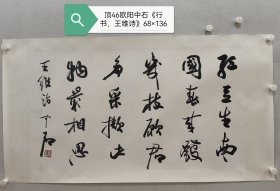 顶46欧阳中石《行
书，王维诗》68×136
紅豆生南
國春来發
幾枝願君
多采擷此
物最相思
王維詩 中石